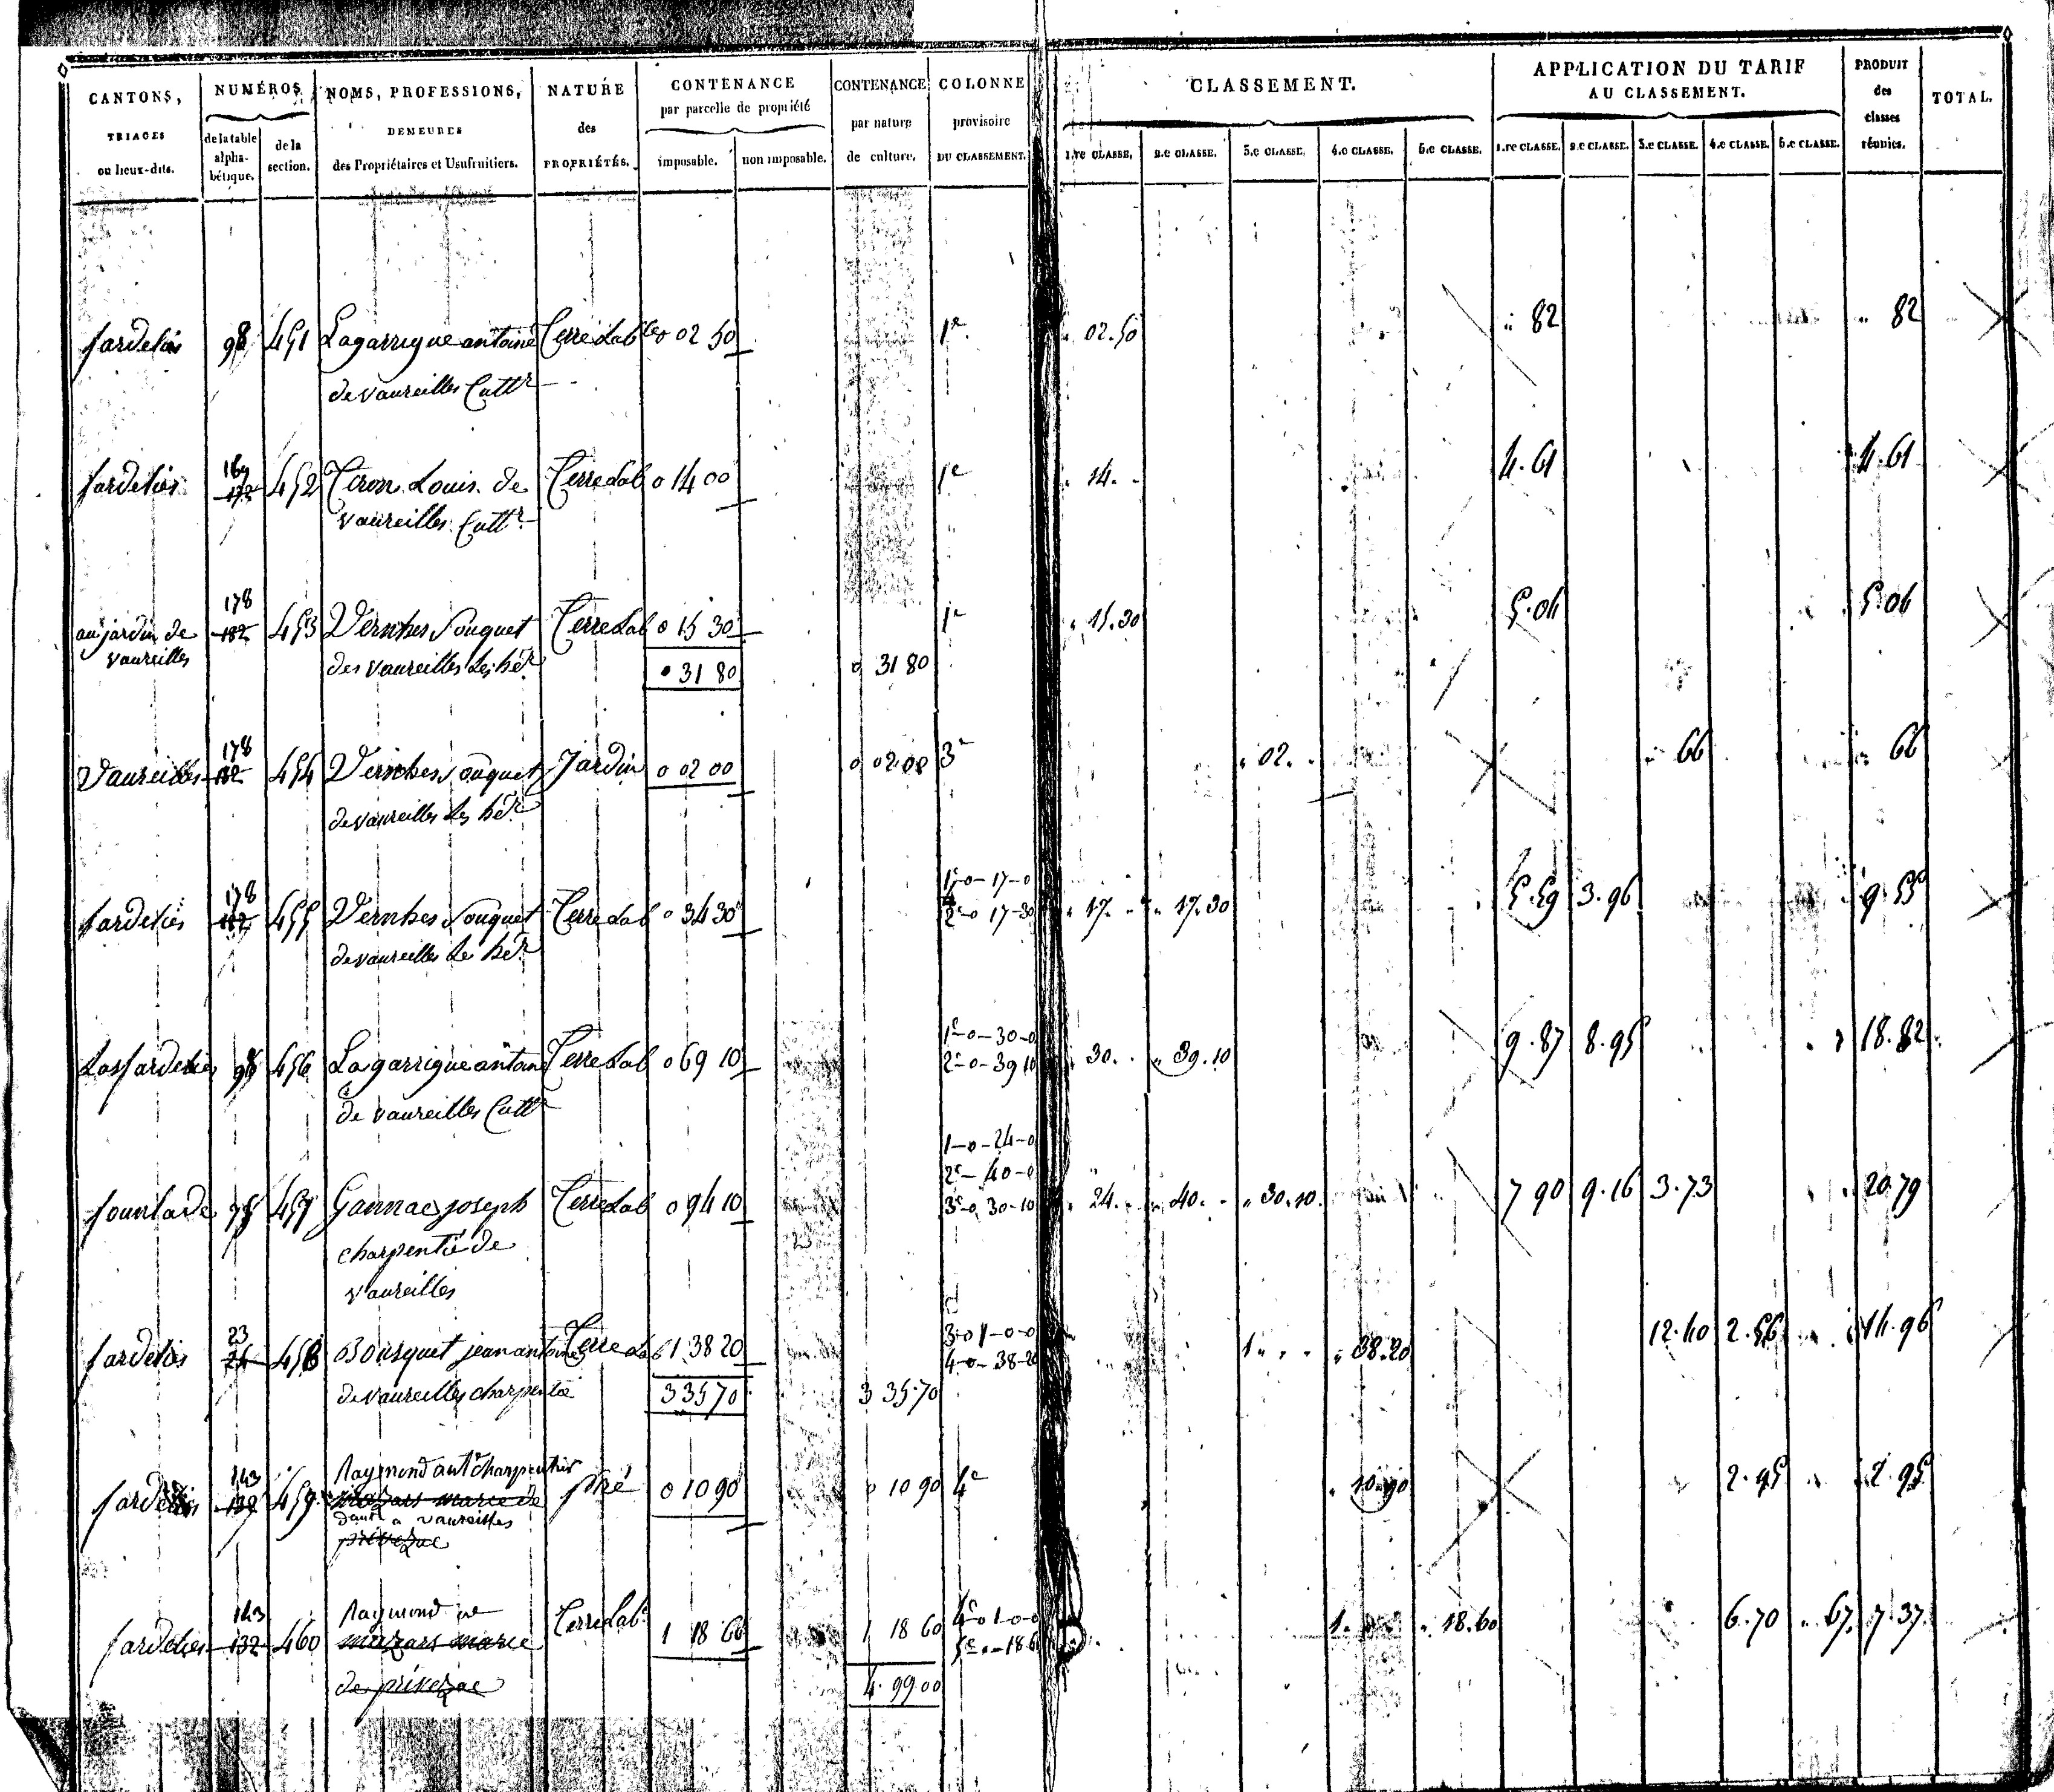 CANTONS,
TRIAGES
ou lieux-dits.
NUMÉROS
de la table
alpha-
bétique.
de la
section.
NOMS, PROFESSIONS,
DEMEURES
des Propriétaires et Usufruitiers.
NATURE
des
PROPRIÉTÉS.
CONTENANCE
par parcelle de propriété
imposable.
non imposable.
CONTENANCE
par nature
de culture.
COLONNE
provisoire
DU CLASSEMENT.
CLASSEMENT.
1.re CLASSE. 2.e CLASSE. 3.e CLASSE. 4.e CLASSE. 5.e CLASSE.
APPLICATION DU TARIF
AU CLASSEMENT.
1.re CLASSE. 2.e CLASSE. 3.e CLASSE. 4.e CLASSE. 5.e CLASSE.
PRODUIT
des
classes
réunies.
TOTAL.
98 451 Lagarrigue antoine Terre Lab 0 02 50 1e 02.50 82 82
de vaureilles Cultr
169
172 452 Louis de Terre Lab 0 14 00 1e 14. 4.61 4.61
vaureilles Cultr
178
au jardin de 182 453 Vernhes Terre Lab 0 15 30 1e 15.30 5.04 5.04
vaureilles des vaureilles Les hér
0 31 80 0 31 80
178
Vaureilles 182 454 Vernhes Jardin 0 02 00 0 02 00 3e 02. 66 66
de vaureilles Les hér
178 1e 0-17-0
182 455 Vernhes Terre Lab 0 34 30 2e 0 17-30 17. 17.30 5.59 3.96 9.55
de vaureilles Les hér
1e 0-30-0
98 456 Lagarrigue antoine Terre Lab 0 69 10 2e 0-39 10 30. 39.10 9.87 8.95 18.82
de vaureilles Cultr
1-0-24-0
2e-40-0
457 Gannac joseph Terre Lab 0 94 10 3e 0 30-10 24. 40. 30.10 7 90 9.16 3.73 20.79
charpentié de
vaureilles
23 3e 0 1-0-0
24 458 Bousquet jean antoine Terre Lab 1 38 20 4-0-38-20 1. 38.20 12.40 2.56 14.96
de vaureilles charpentié
3 35 70 3 35.70
143 Raymond ant charpentier
132 459 mazars marie de pré 0 10 90 0 10 90 4e 10.90 2.95 2.95
a vaureilles
privezac
143 Raymond
132 460 mazars marie Terre Lab 1 18 60 1 18 60 4e 0 1-0-0 1. 18.60 6.70 67. 7.37
de privezac
4.99.00